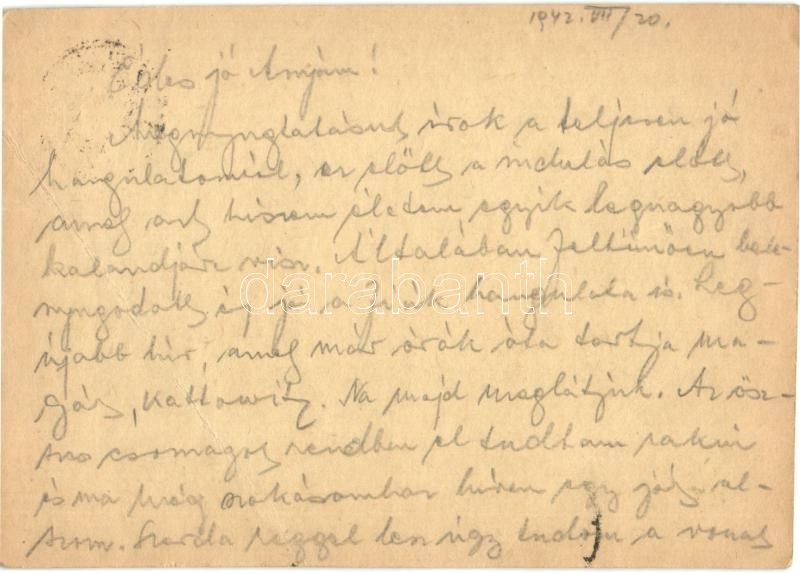 1942. VII/20.
Édes jó Anyám!
Megnyugtatásul írok a teljesen jó
hangulatomról, ez előtt a indulás előtt,
amely azt hiszem életem egyik legnagyobb
kalandjára visz. Általában feltűnően bele-
nyugodott és jó a fiúk hangulata is. Leg-
újabb hír, amely már órák óta tartja ma-
gát, Kattowitz. Na majd meglátjuk. Az ösz-
szes csomagot rendben el tudtam rakni
és ma még szokásomhoz híven egy jót al-
szom. Szerda reggel lesz úgy tudom a vonat
darabanth